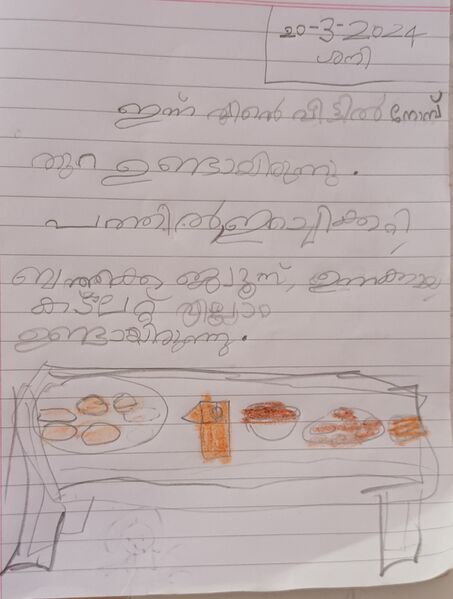 20-3-2024
ശനി
ഇന്ന് എന്റെ വീട്ടിൽ നോമ്പ്
തുറ ഉണ്ടായിരുന്നു.
പത്തിൽ, ഇറച്ചിക്കറി,
ബത്തക്ക ജ്യൂസ്, ഉന്നക്കായ,
കട്ലറ്റ് എല്ലാം
ഉണ്ടായിരുന്നു.